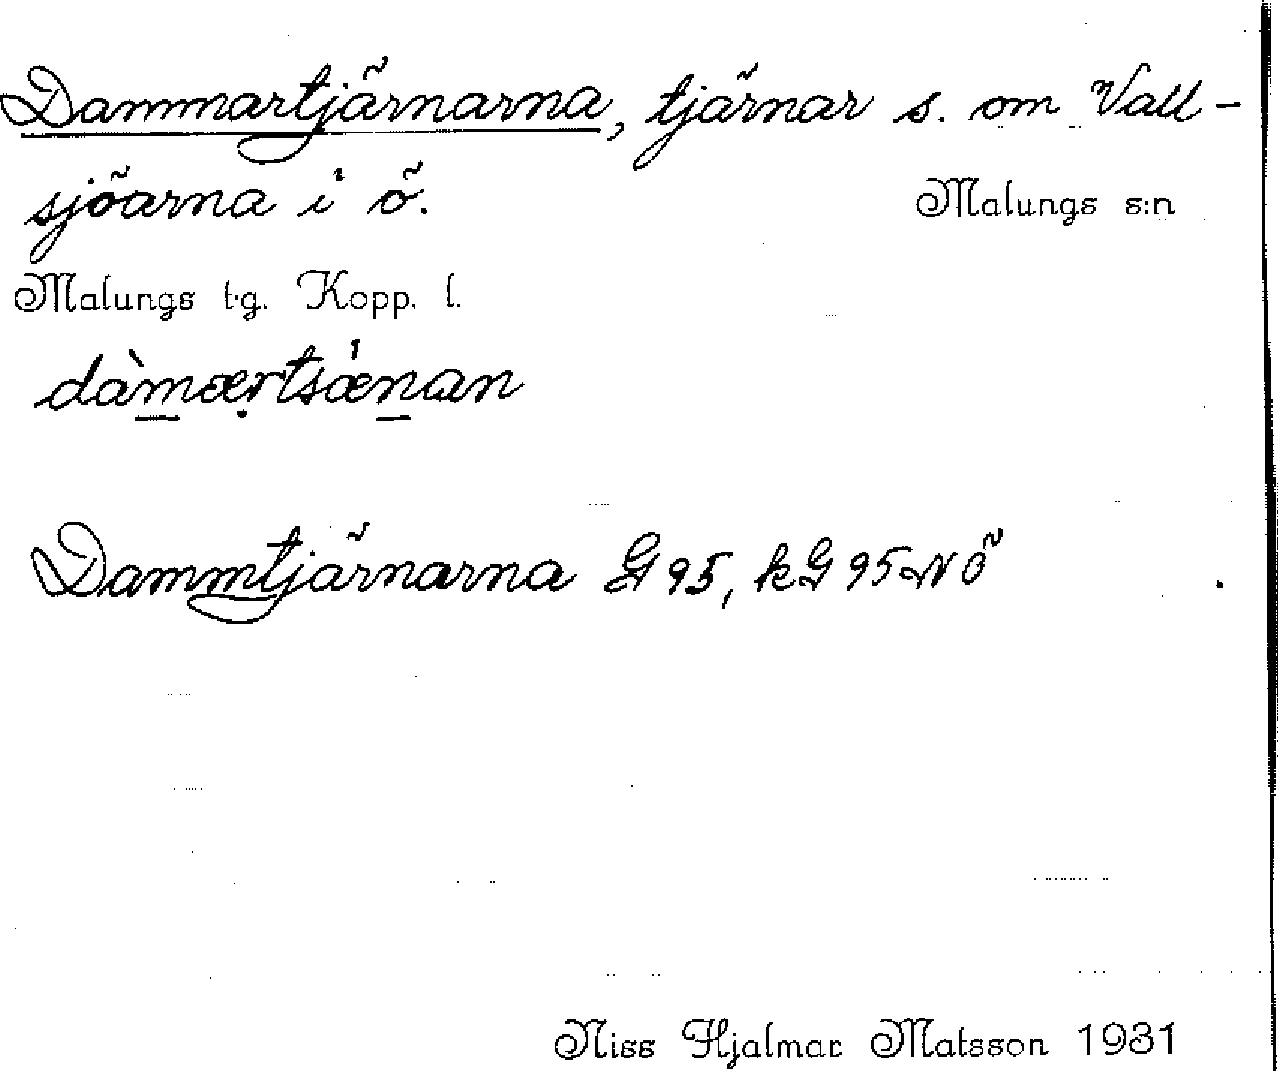 Dammartjärnarna, tjärnar s. om Vall-
sjöarna i ö.
Malungs s:n
Malungs t.g. Kopp. l.
dàmærtsǽnan
Dammtjärnarna G 95, kG 95 NÖ
Niss Hjalmar Matsson 1931